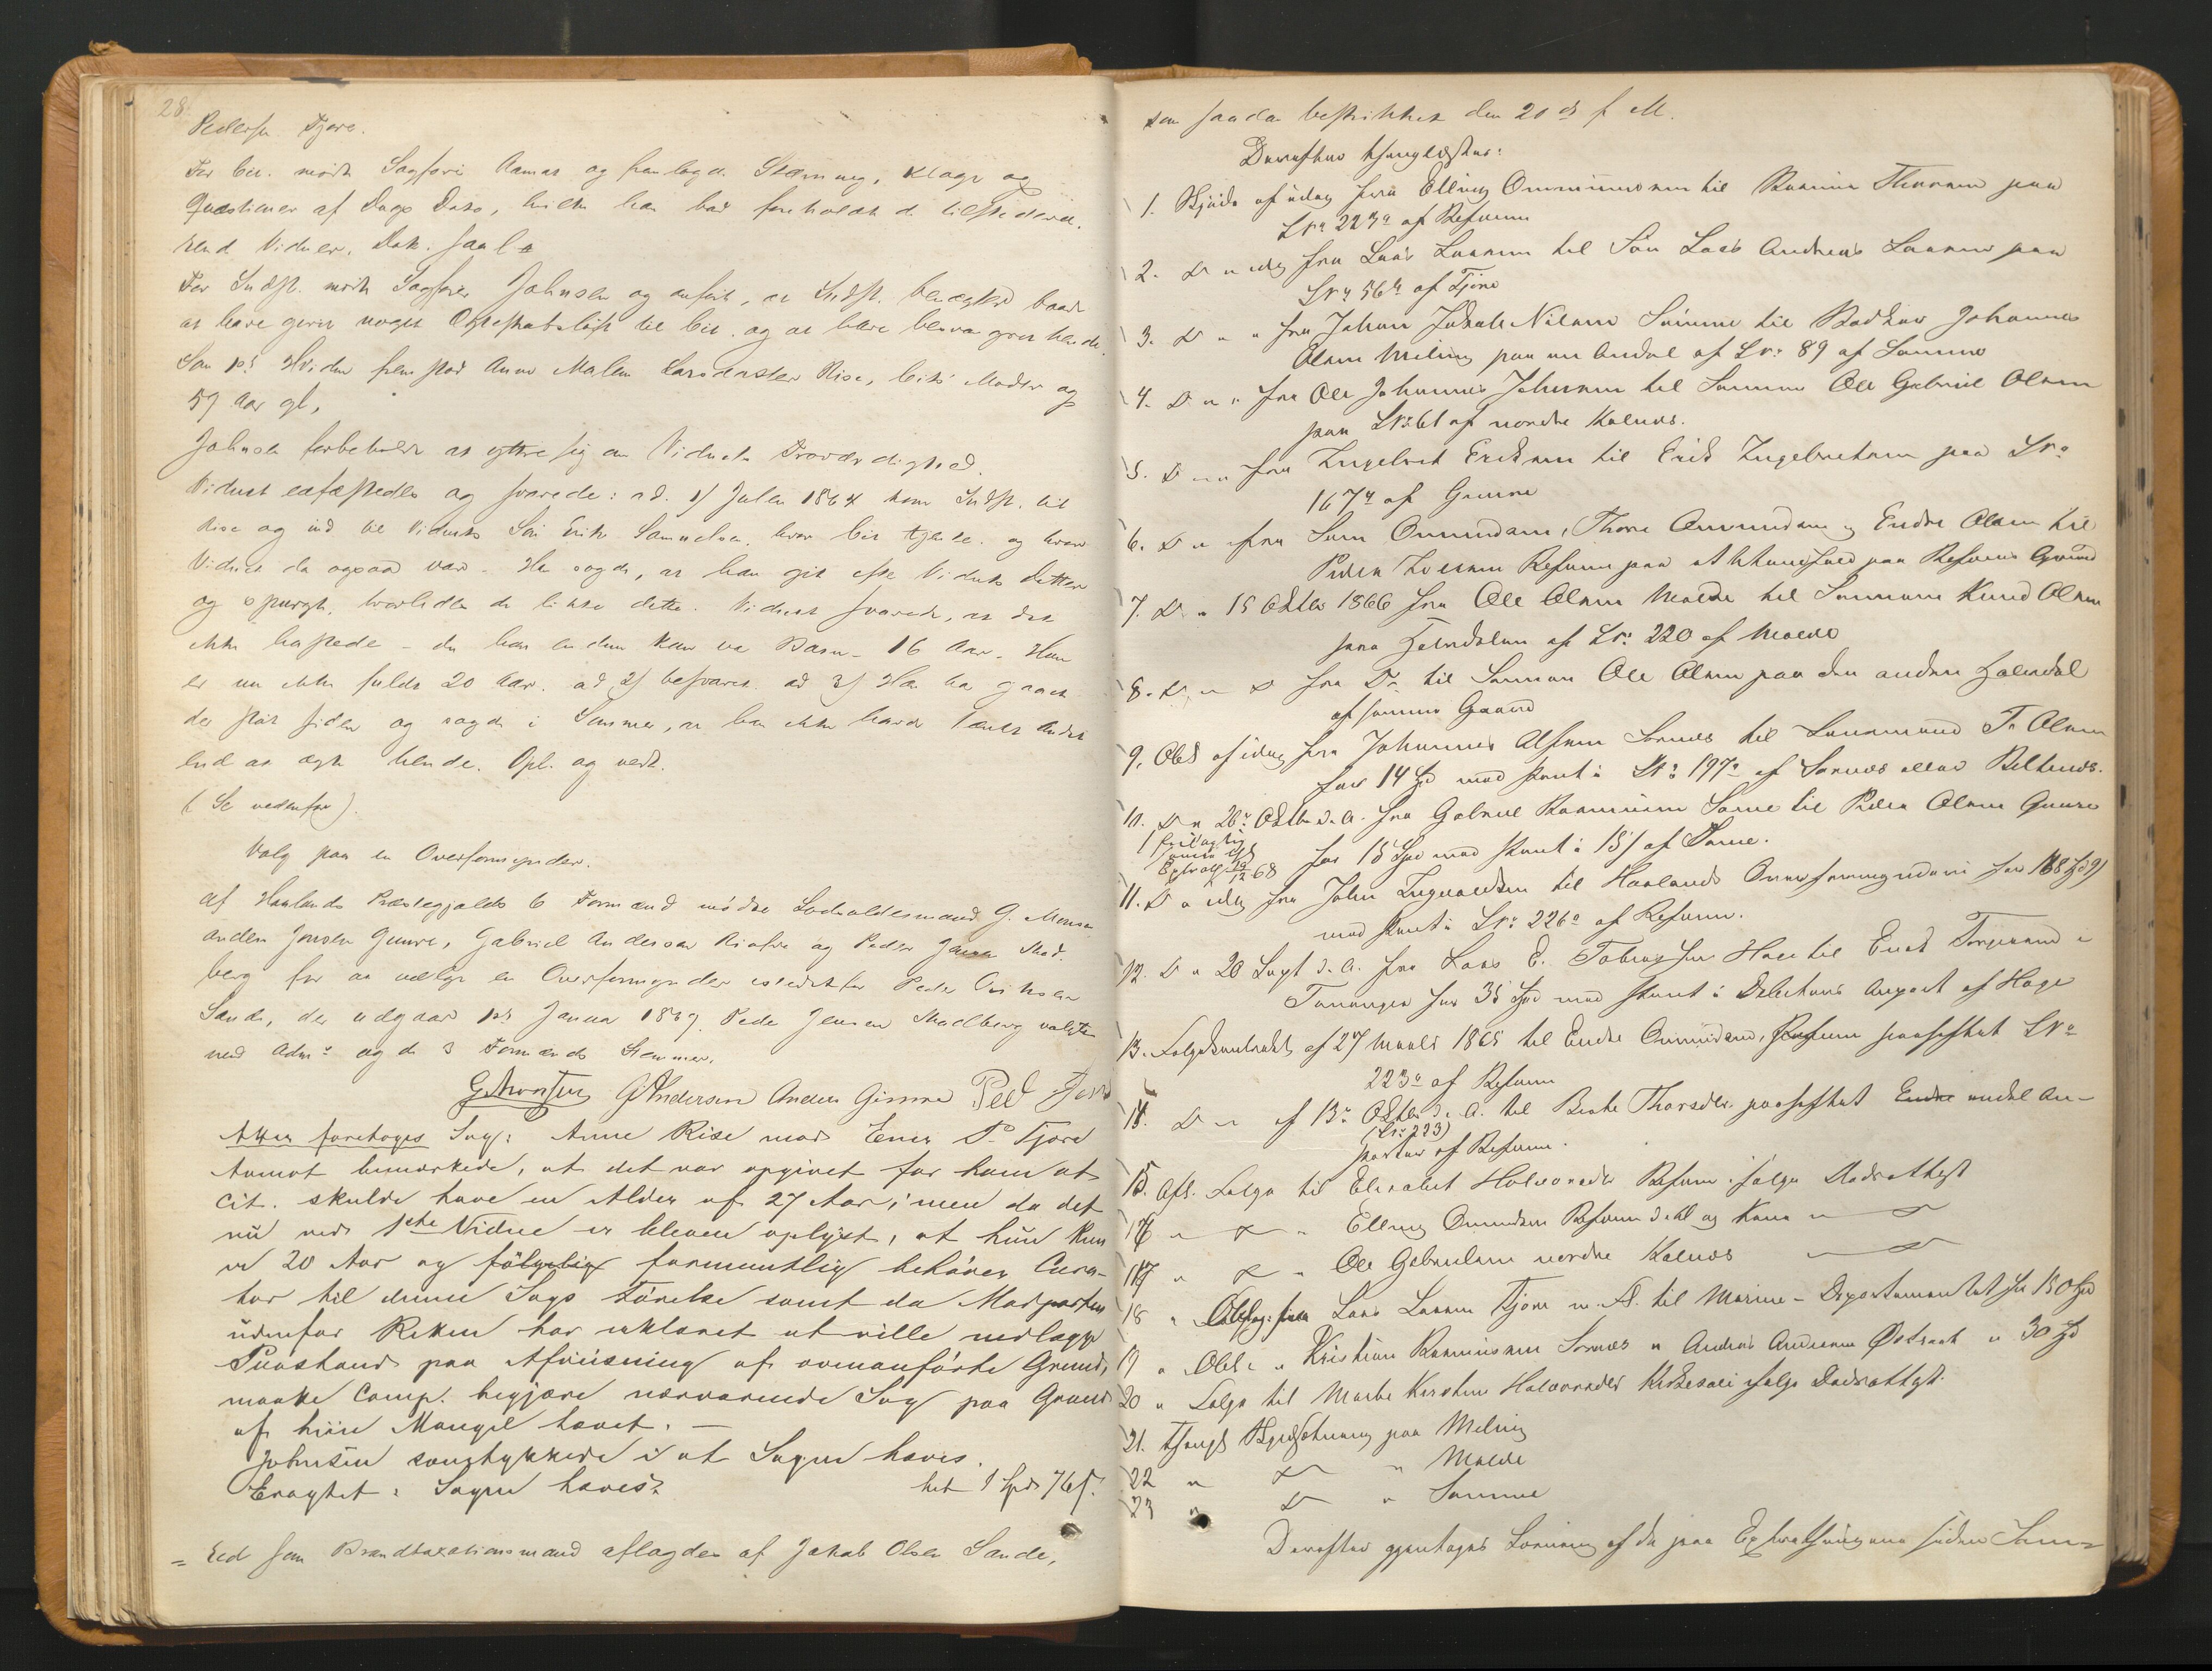 28.
Pedersen Tjora.
For Cit. mødte Sagfører Aamot og fremlagde Stævning, Klage og
Qvæstioner af Dags Dato, hvilke han bad foreholdt de tilstedevæ-
rend Vidner. Dok. saal.
For Indst. mødte Sagfører Johnsen og anførte, at Indst. benægted baade
at have givet noget Ægteskabsløfte til Cit. og at have besvangret hende.
Som 1ste Vidne fremstod Anne Malene Larsdatter Rise, Cits Moder og
57 Aar gl.,
Johnsen forbeholdt at yttre sig om Vidnets Troværdighed.
Vidnet edfæstedes og svarede: ad. 1) Julen 1864 kom Indst. til
Rise og ind til Vidnets Søn Erik Samuelsen, hvor Cit tjente. og hvor
Vidnet da ogsaa var. Han sagde, at han gik efter Vidnets Datter
og spurgte, hvorledes de likte dette. Vidnet svarede, at det
ikke hastede - da hun endnu kun var Barn - 16 Aar. Hun
er nu ikke fuldt 20 Aar. ad 2) besvaret. ad 3) Han har gaaet
der stør siden og sagde i Sommer, at han ikke havde tænkt andet
end at ægte hende. Opl. og vedt.
(Se nedenfor).
Valg paa en Overformynder.
Af Haalands Præstegjelds 6 Formænd mødte Lodsoldermand G. Monsen
Anders Jonsen Gimre, Gabriel Andersen Risfre og Peder Jensen Skad-
berg for at vælge en Overformynder istedetfor Peder
Sande, der udgaar 1ste Januar 1869. Peder Jensen Skadberg valgtes
med Adms og de 3 Formænds Stemmer.
G Monsen G Andersen Anders Gimre Ped Jens
Atter foretoges Sag: Anne Rise mod Enok P. Tjora
Aamot bemærkede, at det var opgivet for ham at
Cit. skulde have en Alder af 27 Aar; men da det
nu ved 1ste Vidne er bleven oplyst, at hun kun
er 20 Aar og følgelig formentlig behøver Cura-
tor til denne Sags Førelse samt da Modparten
udenfor Retten har erklæret at ville nedlægge
Paastand paa Afvisning af ovenanførte Grund,
maatte Comp. begjære nærværende Sag paa Grund
af hiin Mangel hævet. —
Johnsen samtykkede i at Sagen hæves.
Eragtet: Sagen hæves. bet 1 Spd 76 s.
= Eed som Brandtaxationsmand aflagdes af Jakob Olsen Sande,
som saadan beskikket den 20de f M.
Derefter thinglæstes:
1. Skjøde af idag fra Elling Ommundsen til Rasmus Thoresen paa
Lno 223a af Refsnes
2. Do " idag fra Lars Larsen til Søn Lars Andreas Larsen paa
Lno 56b af Tjora
3. Do " " fra Johan Jakob Nilsen Sømme til Baadsbr Johannes
Olsen Meling paa en Andel af Lno 89 af Sømme
4. Do " " fra Ole Johannes Johnsen til Sønnen Ole Gabriel Olsen
paa Lno 61 af nordre Kolnes.
5. Do " " fra Ingebret Eriksen til Erik Ingebretsen paa Lno
167b af Gimre
6. Do " fra Sven Ommundsen, Thore Ommundsen og Endre Olsen til
Peder Larsen Refsnes paa et paa Refsnes Grund
7. Do " 15 Oktbr 1866 fra Ole Olsen Molde til Sønnen Knud Olsen
paa Halvdelen af Lno 220 af Molde
8. Do " Do fra Do til Sønnen Ole Olsen paa den anden Halvdel
af samme Gaard
9. Obl af idag fra Johannes Olsen Sørnes til Lensmand T. Olsen
for 14 Spd mod Pant i Lno 197a af Sørnes eller Bellnes.
10. Do " 26de Oktbr d. A. fra Gabriel Rasmussen Sømme til Peder Olsen Gimre
for 15 Spd mod Pant i 151 af Sømme.
11. Do " idag fra John Ingvaldsen til Haalands Overformynderi for 168
mod Pant i Lno 226a af Refsnes.
12. Do " 20 Sept d. A. fra Lars E. Tobiassen Haga til Enok Torgersen i
Tananger for 35 Spd mod Pant i Debitors Anpart af Haga
13. Folgekontrakt af 27 Marts 1865 til Endre Ommundsen, Refsnes paaheftet Lno
223a af Refsnes
14. Do " af 13de Oktbr d. A. til Berte Thorsdtr. paaheftet Endre endel An-
(Lno 223)
parter af Refsnes.
15. Afl. Folge til Elisabet Halvorsdtr Refsnes ifølge Dødsattest
16 " Do " Elling Ommundsen Refsnesdahl og Kone " Do
17 " Do " Ole Gabrielsen nordre Kolnes " Do
18 " Oblig. fra Lars Larsen Tjora m. Fl. til Marine-Departementet for 150 Spd
19 " Obl. " Kristian Rasmussen Sørnes " Andreas Andersen Østraat " 30 Spd
20 " Folge til Marta Kirstine Halvorsdtr ifølge Dødsattest.
21. Thingl. Skyldsætning paa Meling
22 " Do " Molde
23 " Do " Sømme
Derefter gjentoges Læsning af de paa Extrathingene siden Som-